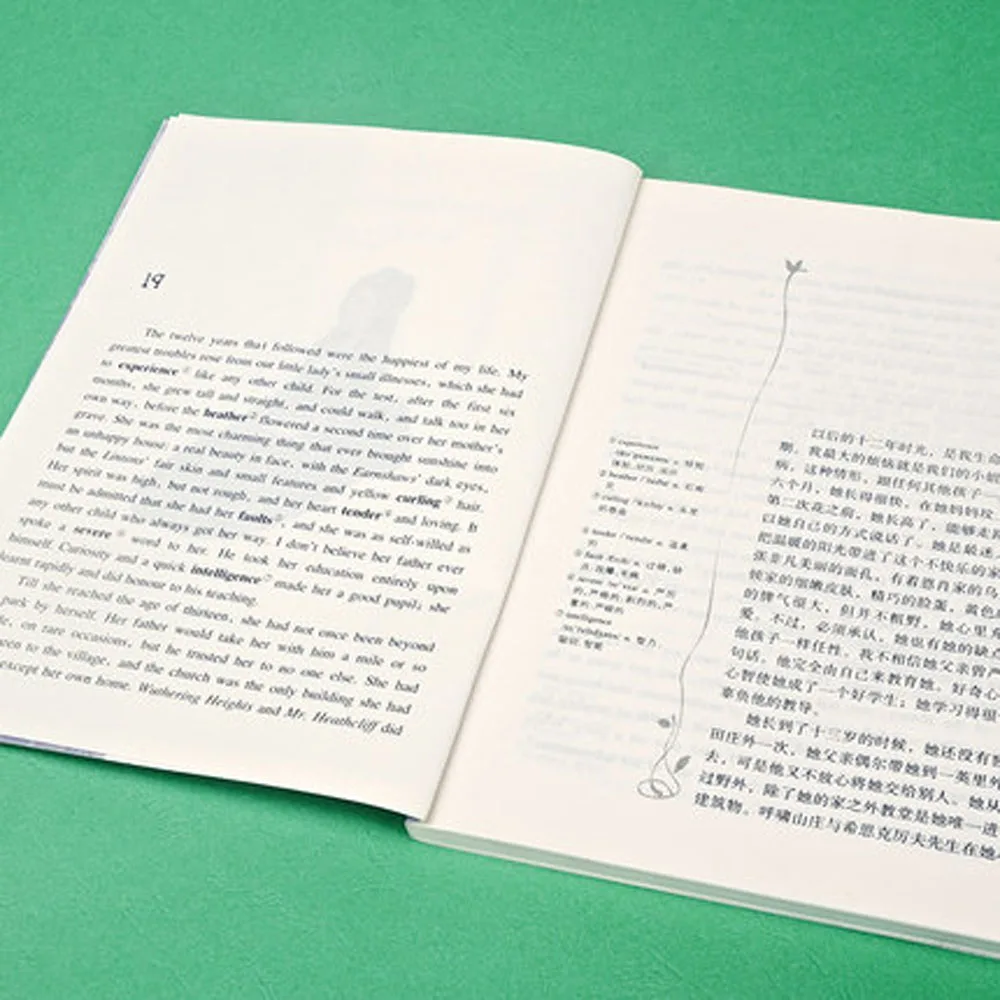 19
The twelve years that followed were the happiest of my life. My
greatest troubles rose from our little lady's small illnesses, which she had
to experience① like any other child. For the test, after the first six
months, she grew tall and straight, and could walk, and talk too in her
own way, before the heather② flowered a second time over her mother's
grave. She was the most charming thing that ever brought sunshine into
an unhappy house: a real beauty in face, with the Earnshaws' dark eyes,
but the Lintons' fair skin and small features and yellow curling③ hair.
Her spirit was high, but not rough, and her heart tender④ and loving. It
must be admitted that she had her faults⑤, and she was as self-willed as
any other child who always got her way. I don't believe her father ever
spoke a severe⑥ word to her. He took her education entirely upon
himself. Curiosity and a quick intelligence⑦ made her a good pupil; she
learnt rapidly and did honour to his teaching.
Till she reached the age of thirteen, she had not once been beyond
park by herself. Her father would take her with him a mile or so
on rare occasions, but he trusted her to no one else. She had
to the village, and the church was the only building she had
except her own home. Wuthering Heights and Mr. Heathcliff did
① experience
② heather
③ curling
④ tender
⑤ fault
⑥ severe
的, 严格的
⑦ intelligence
n. 智力,
以后的十二年时光，是我生命
期，我最大的烦恼就是我们的小姐
病，这种情形，跟任何其他孩子一
六个月，她长得很快，在她妈妈坟
第二次花之前，她长高了，能够走路
以她自己的方式说话了。她是最迷
把温暖的阳光带进了这个不快乐的家
张非凡美丽的面孔，有着恩肖家的乌
侯家的细嫩皮肤，精巧的脸蛋，黄色
的脾气很大，但并不粗野，她心里充
爱，不过，必须承认，她也有她的缺点
他孩子一样任性。我不相信她父亲曾严
句话。他完全由自己来教育她。好奇心
心智使她成了一个好学生；她学习得很
辜负他的教导。
她长到了十三岁的时候，她还没有
田庄外一次，她父亲偶尔带她到一英里外
去，可是他又不放心将她交给别人。她从
过野外，除了她的家之外教堂是她唯一进
建筑物。呼啸山庄与希思克历夫先生在她